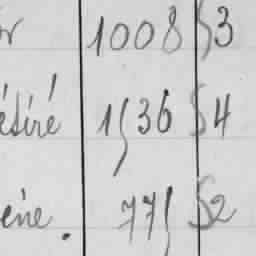 r 1008 53
ésiré 1536 54
ène. 775 52